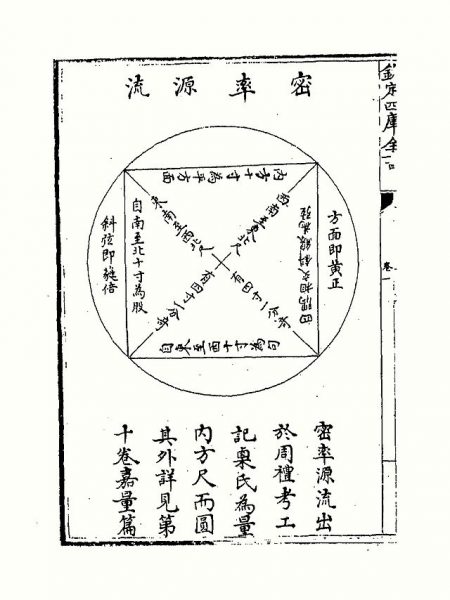 欽定四庫全書
卷一
密率源流
內方十寸為平方面
方面即黃正
四隅相去斜線為弦
自南至北十寸為股
斜弦即蕤倍
密率源流出
於周禮考工
記㮚氏為量
內方尺而圓
其外詳見第
十卷嘉量篇